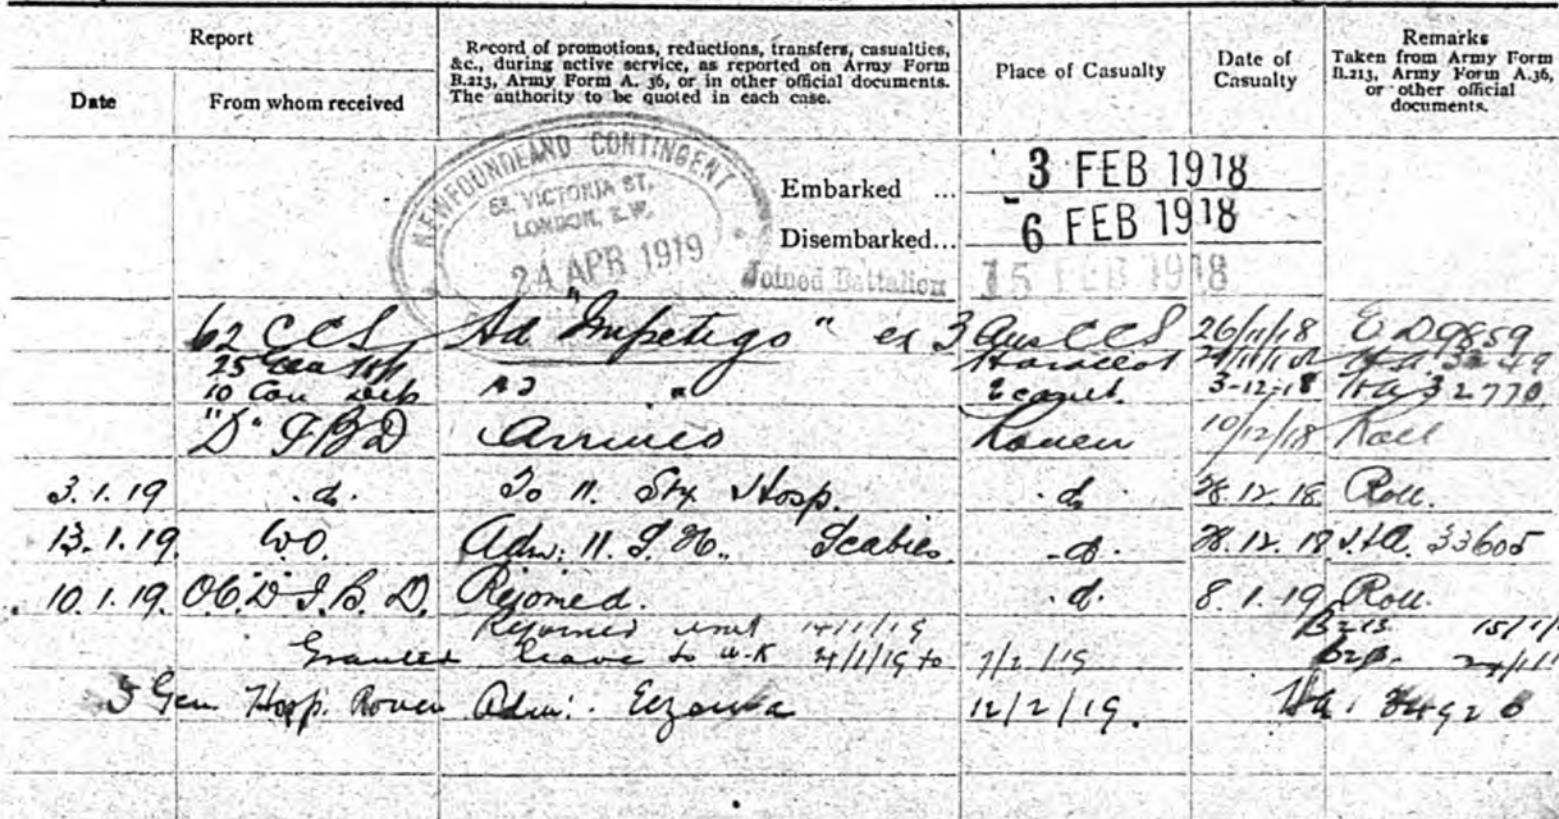 Report
Date
From whom received
Record of promotions, reductions, transfers, casualties, &c., during active service, as reported on Army Form B.213, Army Form A. 36, or in other official documents. The authority to be quoted in each case.
Place of Casualty
Date of Casualty
Remarks
Taken from Army Form B.213, Army Form A.36, or other official documents.
NEWFOUNDLAND CONTINGENT
VICTORIA ST,
LONDON, S.W.
24 APR 1919
Embarked ... 3 FEB 1918
Disembarked... 6 FEB 1918
Joined Battalion 15 FEB 1918
62 CCS Ad "Impetigo" ex 3 Aus CCS 26/11/18 9859
25 Gen
10 Con Dep " 3-12-18 32770
"D" IBD Arrived Rouen 10/12/18 Roll
3.1.19 .d. To 11. Sty Hosp. .d. 28.12.18 Roll.
13.1.19. W.O. Adm: 11. S.H. Scabies .d. 28.12.18 33605
10.1.19. O.C. "D" I.B.D. Rejoined. .d. 8.1.19 Roll.
Rejoined unit 14/1/19 B213
Granted leave to U.K 24/1/19 to 7/2/19
5 Gen Hosp. Rouen Adm: 12/2/19.